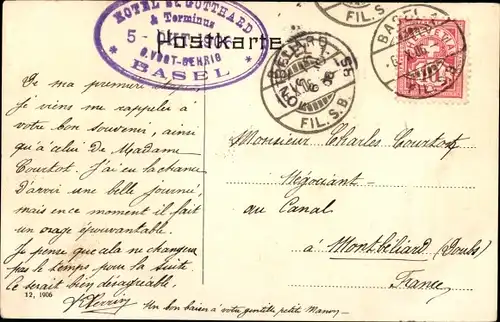 HOTEL ST. GOTTHARD
& Terminus
5 - OKT. 1906
G. VOGT-GEHRIG
* BASEL *
Postkarte
FIL. S.B.
BASEL
FIL. S.B.
De ma première étape,
Je viens me rappeler à
votre bon souvenir, ainsi
qu'à celui de Madame
Courtot. J'ai eu la chance
D'avoir une belle journée,
mais en ce moment il fait
un orage épouvantable.
Je pense que cela ne changera
pas le temps pour la suite
Ce serait bien désagréable.
Un bon baiser à votre gentille petite Manon
12, 1906
Monsieur Charles Courtot
Négociant
au Canal
à Montbéliard (Doubs)
France